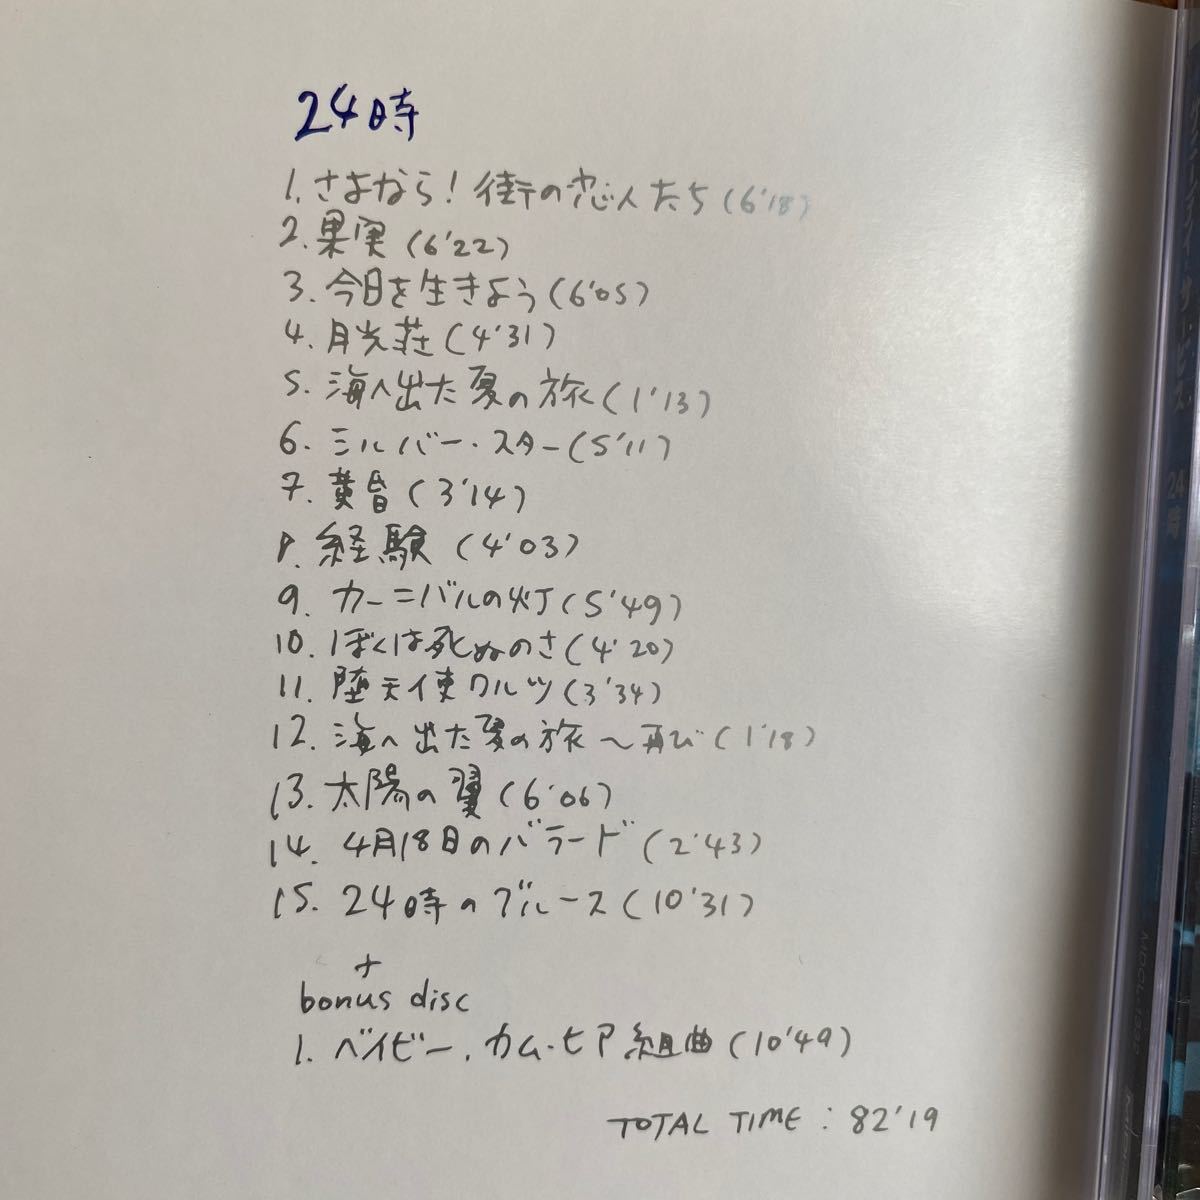 24時
1. さよなら! 街の恋人たち (6'18)
2. 果実 (6'22)
3. 今日を生きよう (6'05)
4. 月光荘 (4'31)
5. 海へ出た夏の旅 (1'13)
6. シルバー・スター (5'11)
7. 黄昏 (3'14)
8. 経験 (4'03)
9. カーニバルの灯 (5'49)
10. ぼくは死ぬのさ (4'20)
11. 堕天使ワルツ (3'34)
12. 海へ出た夏の旅〜再び (1'18)
13. 太陽の翼 (6'06)
14. 4月18日のバラード (2'43)
15. 24時のブルース (10'31)
+
bonus disc
1. ベイビー・カム・ヒア組曲 (10'49)
TOTAL TIME : 82'19
24時